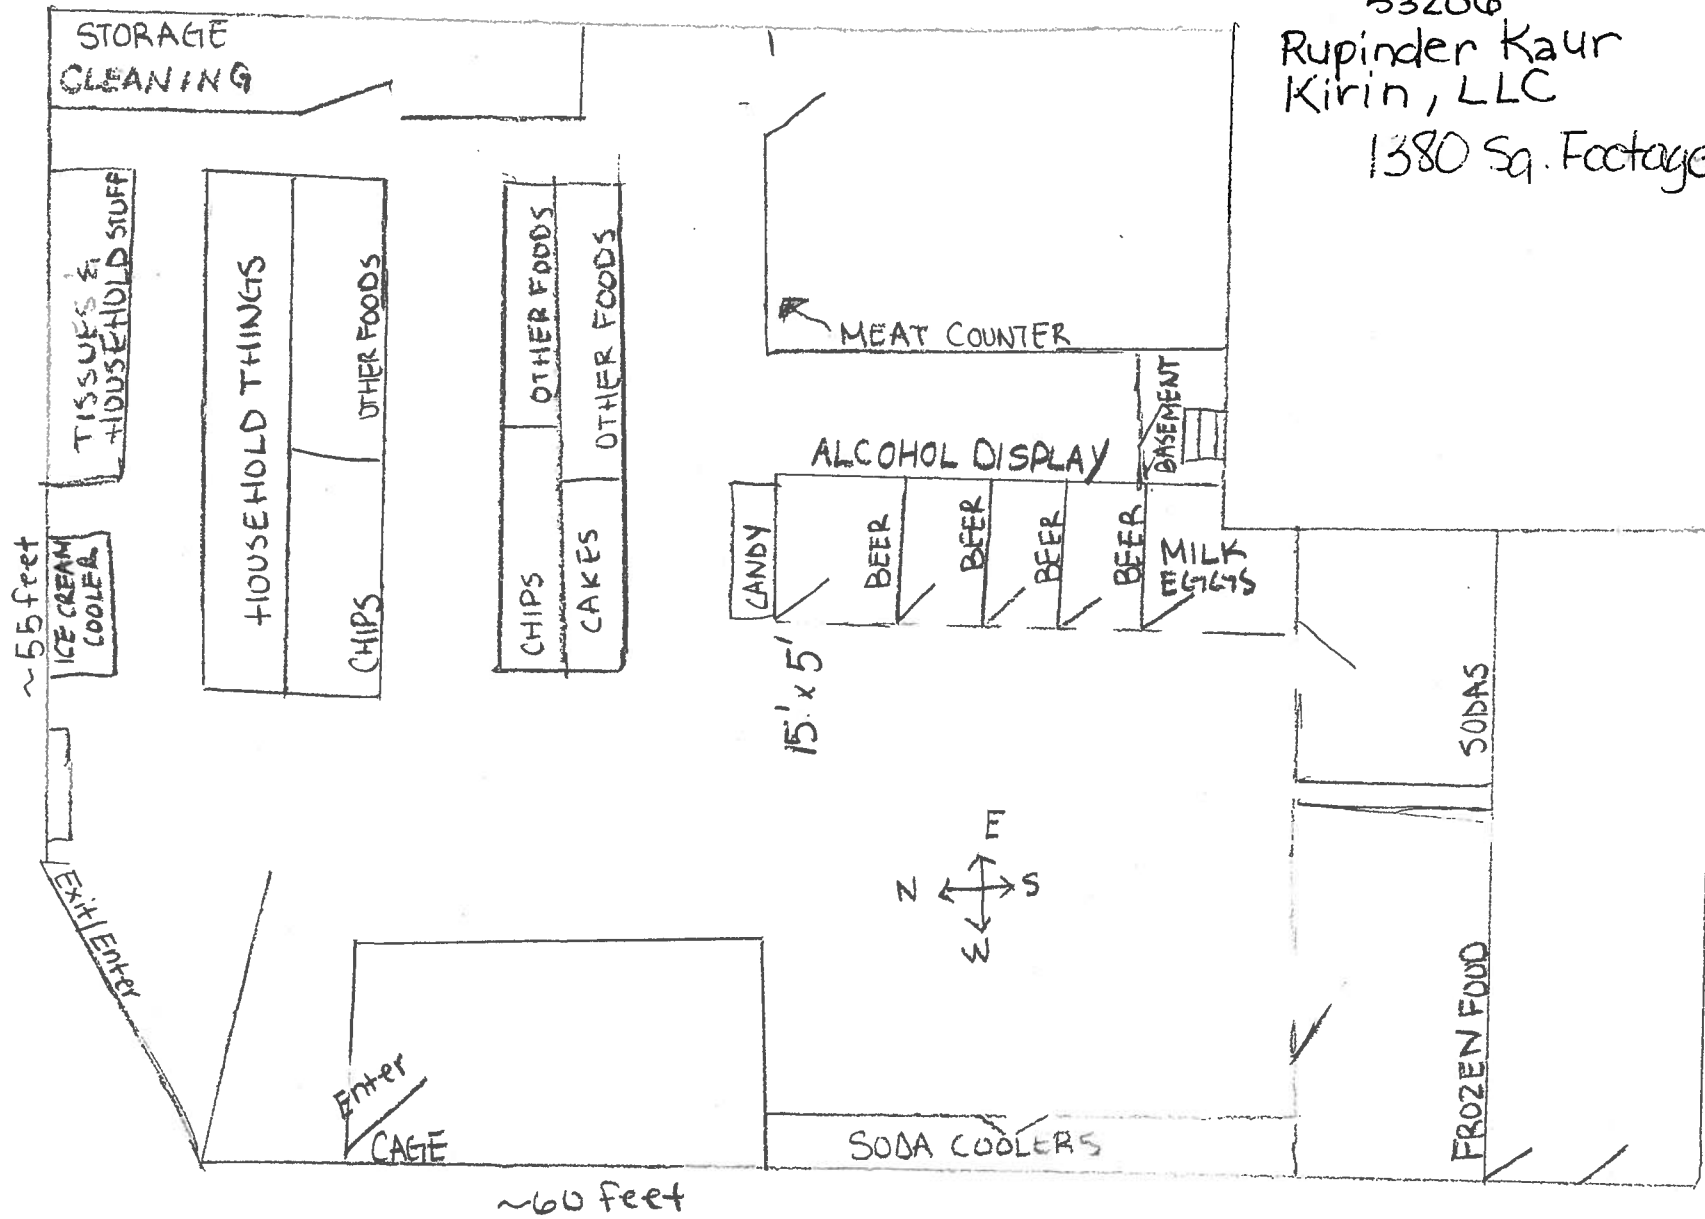 53206
Rupinder Kaur
Kirin, LLC
1380 Sq. Footage
STORAGE
CLEANING
TISSUES &
HOUSEHOLD STUFF
HOUSEHOLD THINGS
OTHER FOODS
CHIPS
OTHER FOODS
CHIPS
OTHER FOODS
CAKES
MEAT COUNTER
BASEMENT
ALCOHOL DISPLAY
CANDY
BEER
BEER
BEER
BEER
MILK
EGGS
15' x 5'
~55 feet
ICE CREAM
COOLER
SODAS
E
N
S
W
Exit/Enter
Enter
CAGE
SODA COOLERS
FROZEN FOOD
~60 feet